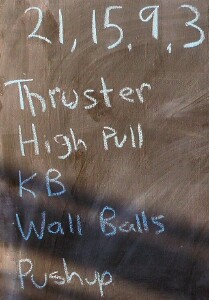 21, 15, 9, 3
Thruster
High Pull
KB
Wall Balls
Pushup